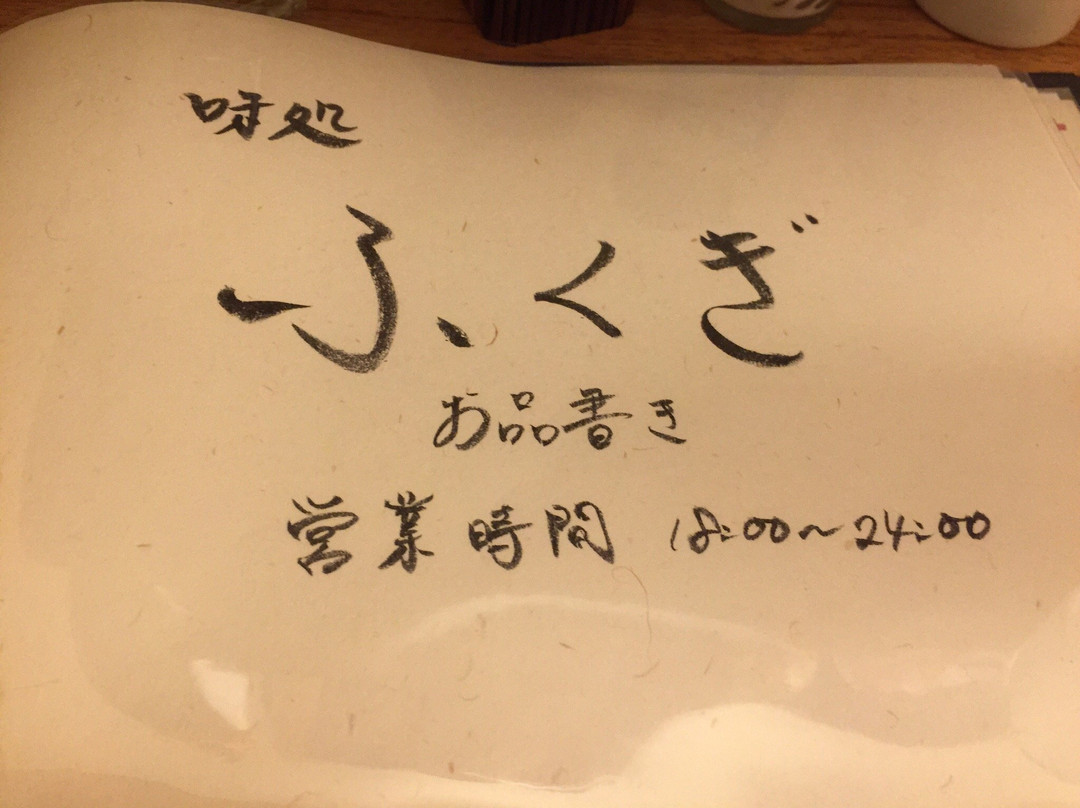 味処
ふくぎ
お品書き
営業時間 18:00~24:00